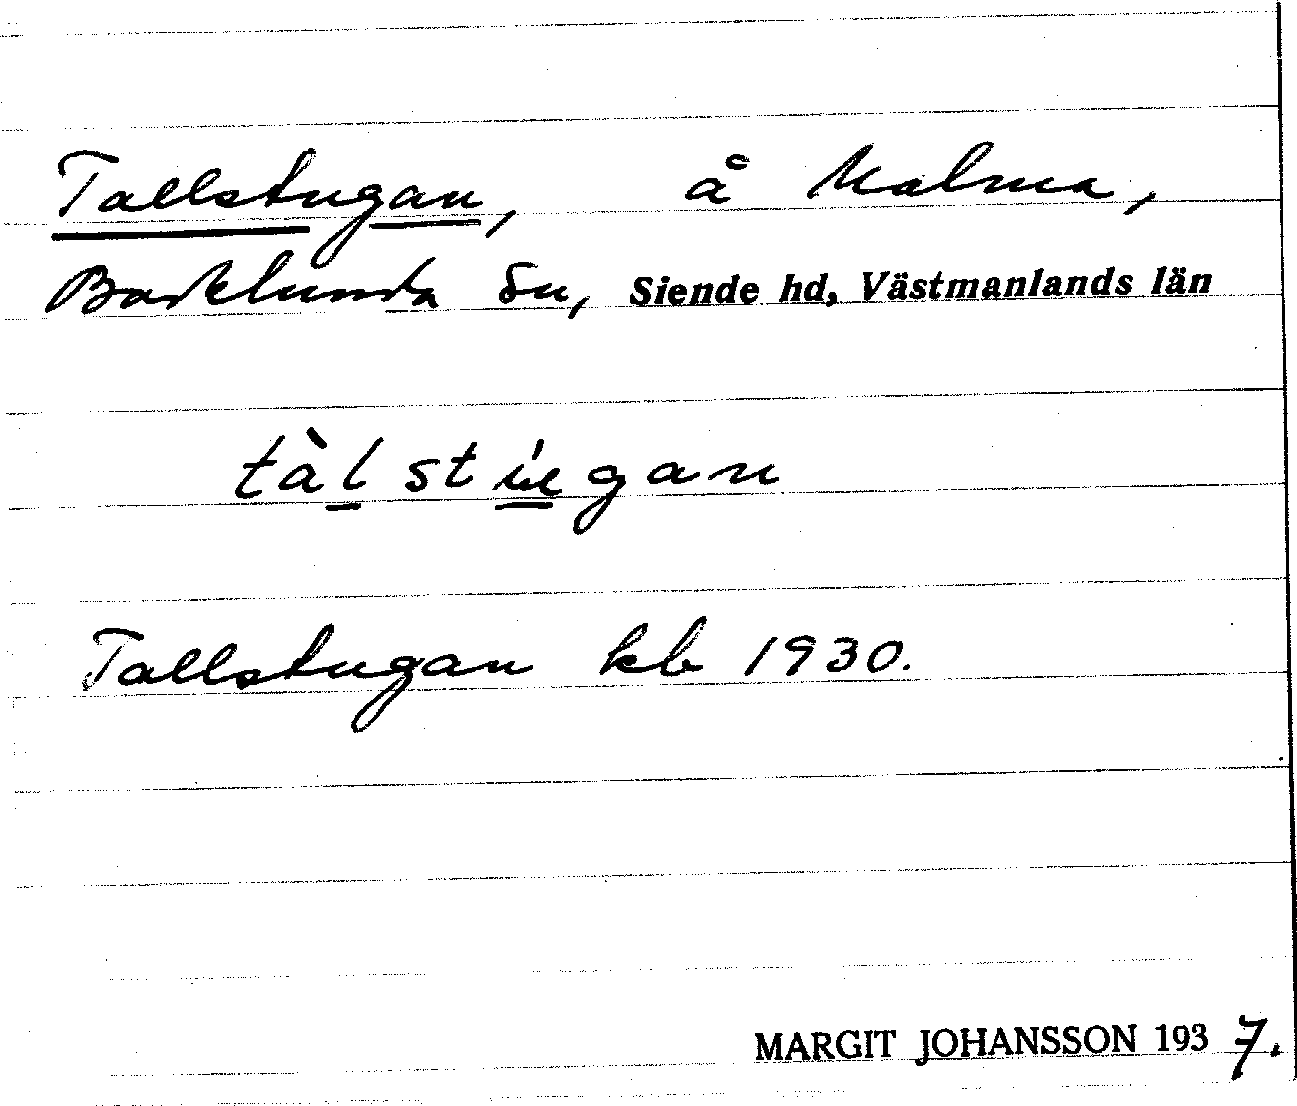 Tallstugan, å Malma,
Badelunda sn, Siende hd, Västmanlands län
tàlstu̇gan
Tallstugan kb 1930.
MARGIT JOHANSSON 1937.